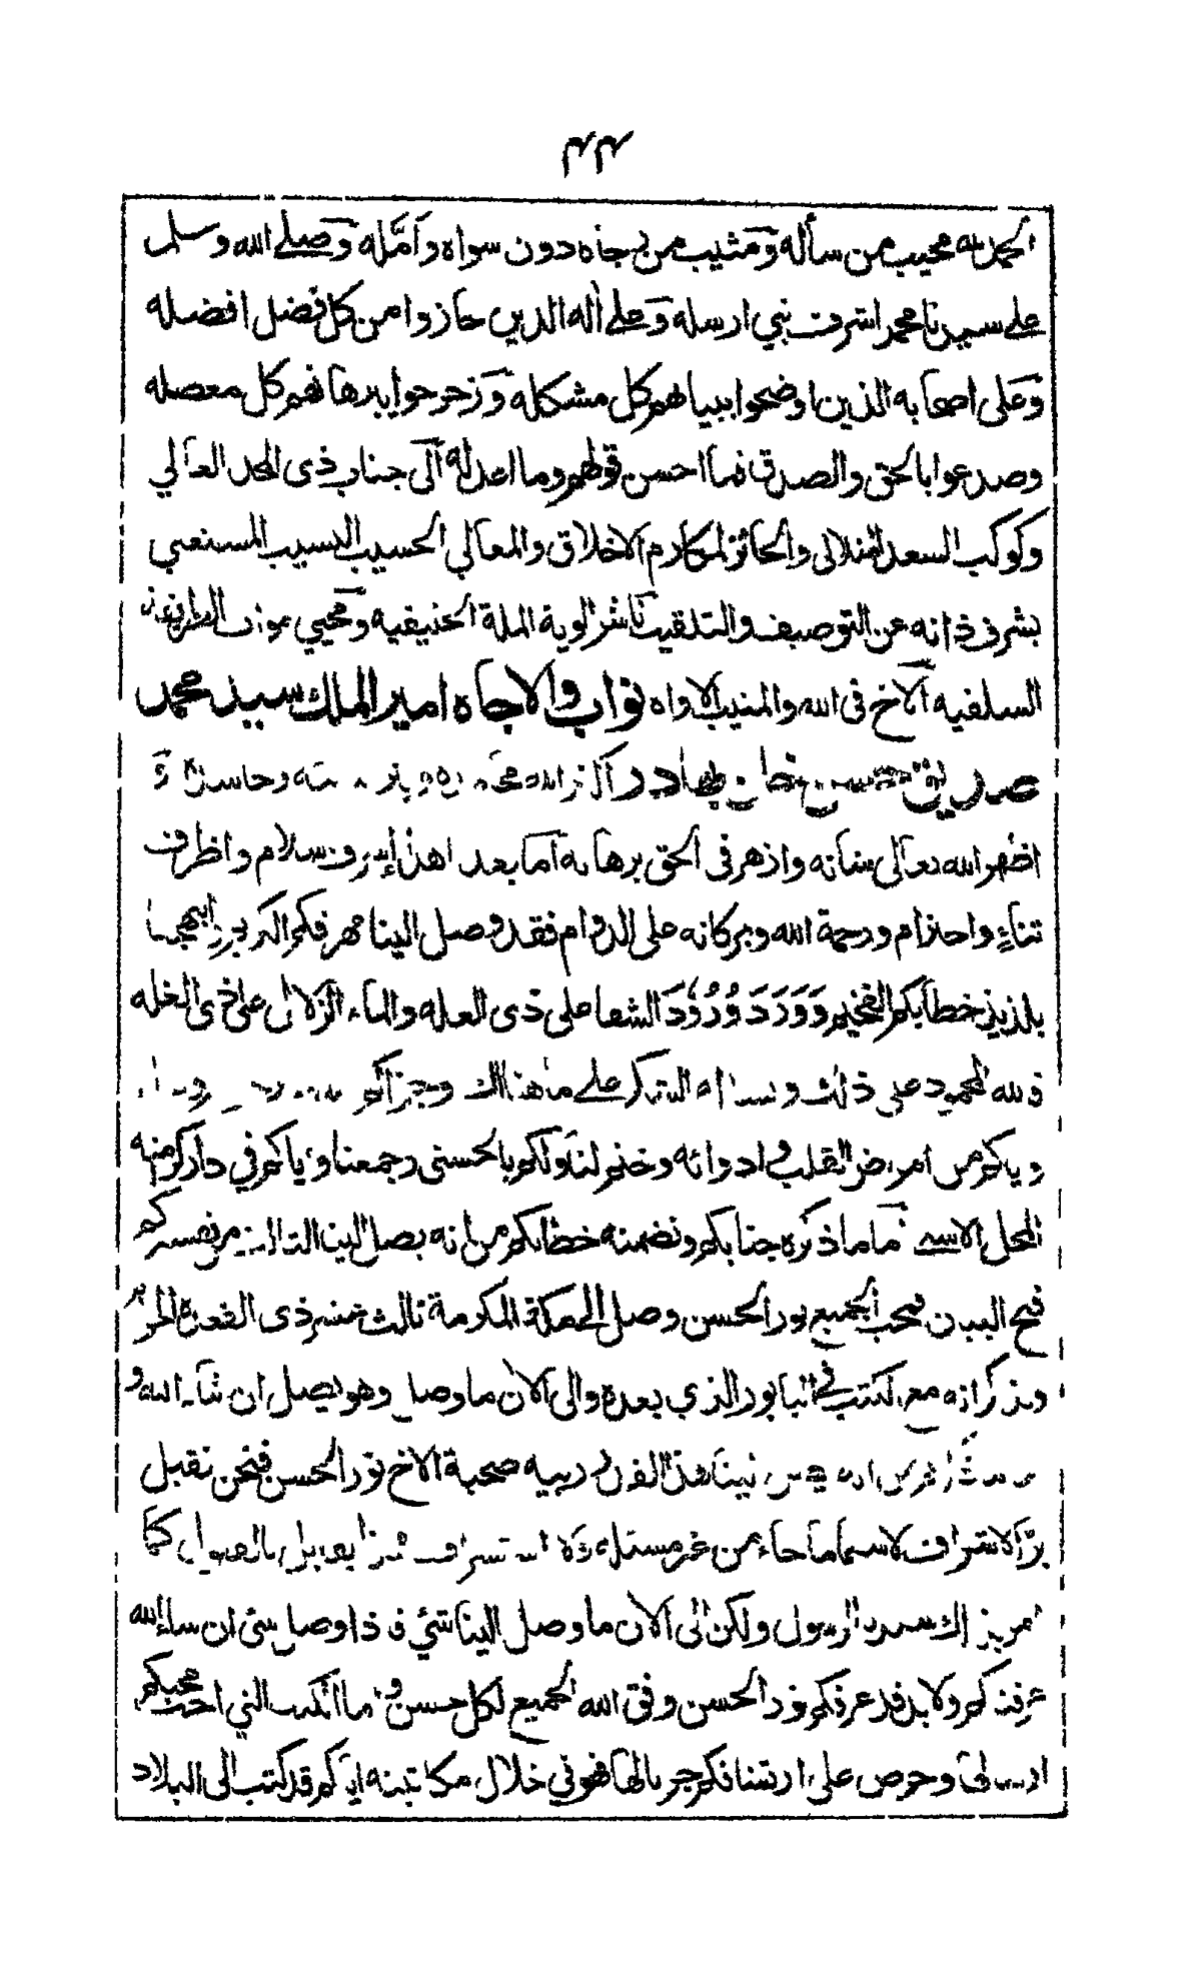 ٢٣
الحمد لله مجيب من سأله ومثيب من رجاه دون سواه وأمّله وصلى الله وسلم
على سيدنا محمد اشرف نبي ارسله وعلى أله الذين حازوا من كل فضل افضله
وعلى اصحابه الذين اوضحوا ببيانهم كل مشكله وزحزحوا ببرهانهم كل معضله
وصدعوا بالحق والصدق فما احسن قولهم وما اعدله الى جناب ذى المجد العالي
وكوكب السعد المتلالى والحائز لمكارم الاخلاق والمعالي الحسيب النسيب المستغني
بشرف ذاته عن التوصيف والتلقيب ناشر الوية الملة الحنيفيه ومحيي موات الطريقة
السلفيه الاخ فى الله والمنيب الاواه نواب والاجاه امير الملك سيد محمد
صديق حسن خان بهادر و
اظهر الله تعالى شانه وازهر فى الحق برهانه اما بعد اهداء اشرف سلام واظرف
ثناء واحترام ورحمة الله وبركاته على الدوام فقد وصل الينا مهرفكم الكريم
بلذيذ خطابكم الفخيم وَوَرَدَ وُرُوْدَ الشفا على ذى العله والماء الزلال على ذى الغله
فلله المحمود على ذلك وله الشكر على ما هنالك وجزاكم
وياكم من امراض القلب وادوائه وختم لنا ولكم بالحسنى وجمعنا واياكم في دار كرامته
المحل الاسنى فما ما ذكره جنابكم وتضمنه خطابكم من انه يصل الينا الثالث من تفسيركم
فتح البيان صحب الجميع نور الحسن وصل الى مكة المكرمة ثالث عشر ذى القعدة الحرام
وذكر انه مع الكتب في البابور الذي بعده والى الان ما وصل وهو يصل ان شاء الله و
صحبة الاخ نور الحسن فنحن نقبل
بر الاشراف لاسيما ما جاء من غير مسئله كما
الرسول ولكن الى الان ما وصل الينا شئي فاذا وصل شئ ان شاء الله
عرفتكم ولا بد قد عرفكم نور الحسن وفق الله الجميع لكل حسن واما الكتب التي احب محبكم
ارسالها وحرص على ارتشافكم جريالها فهو في خلال مكاتبته اياكم قد كتب الى البلاد